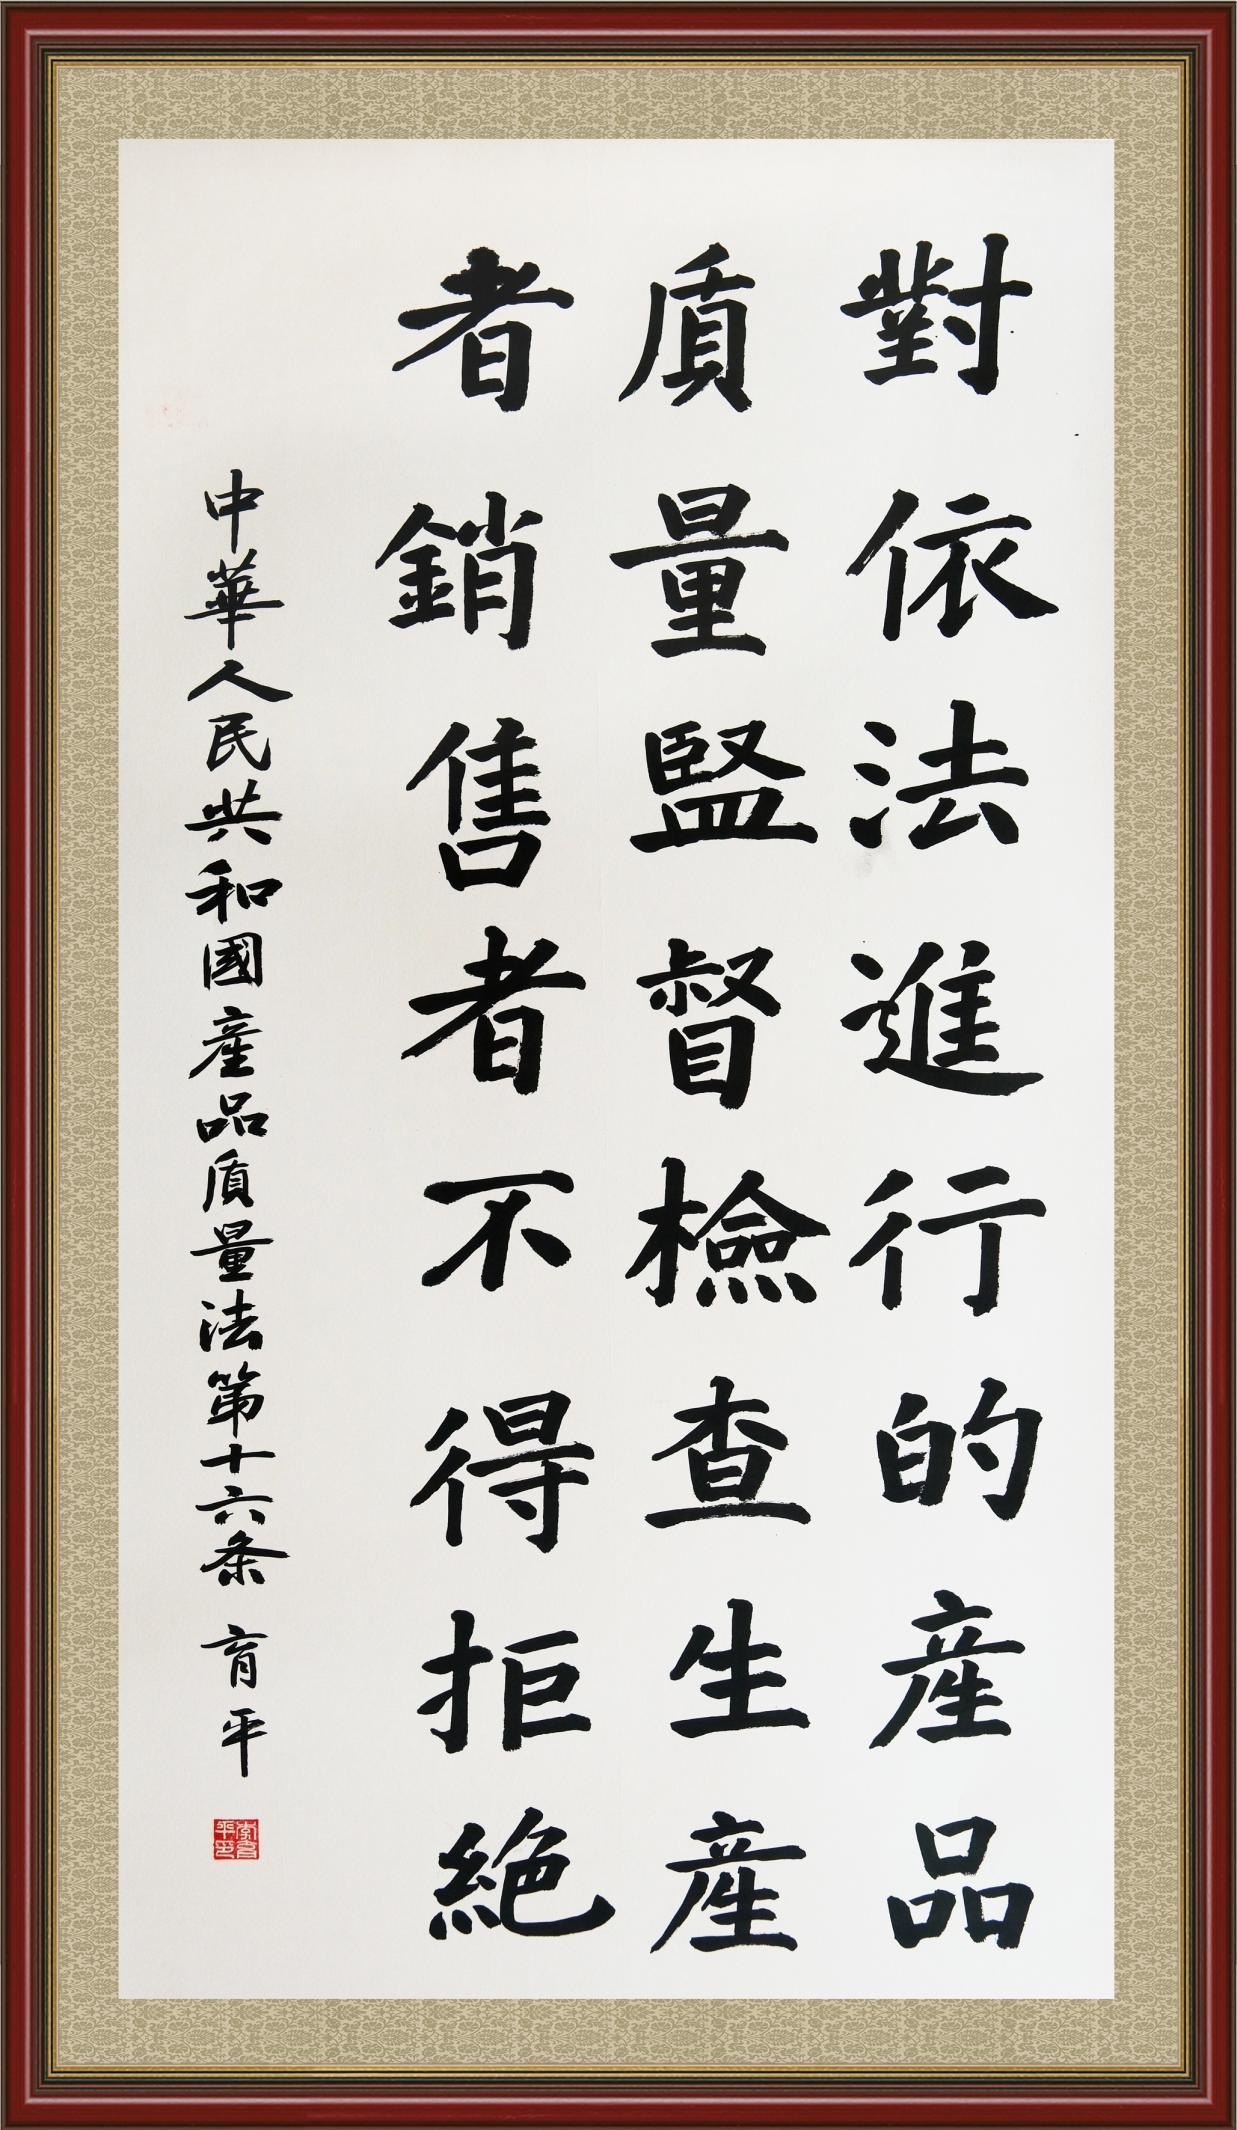 對依法進行的産品
质量監督檢查生産
者銷售者不得拒絶
中華人民共和國産品质量法第十六条 育平